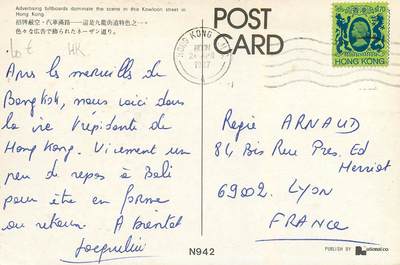 Advertising billboards dominate the scene in this Kowloon street in
Hong Kong.
招牌凌空・汽車滿路——這是九龍街道特色之一
色々な広告で飾られたネーザン通り。
HK
POST
CARD
HONG KONG
1987
HONG KONG
Après les merveilles de
Bangkok, nous voici dans
la vie trépidante de
Hong Kong. Vivement un
peu de repos à Bali
pour être en forme
au retour. A bientôt
Jacqueline
Regie ARNAUD
84 Bis Rue Pres. Ed
Herriot
69002. LYON
FRANCE
N942
PUBLISH BY National co